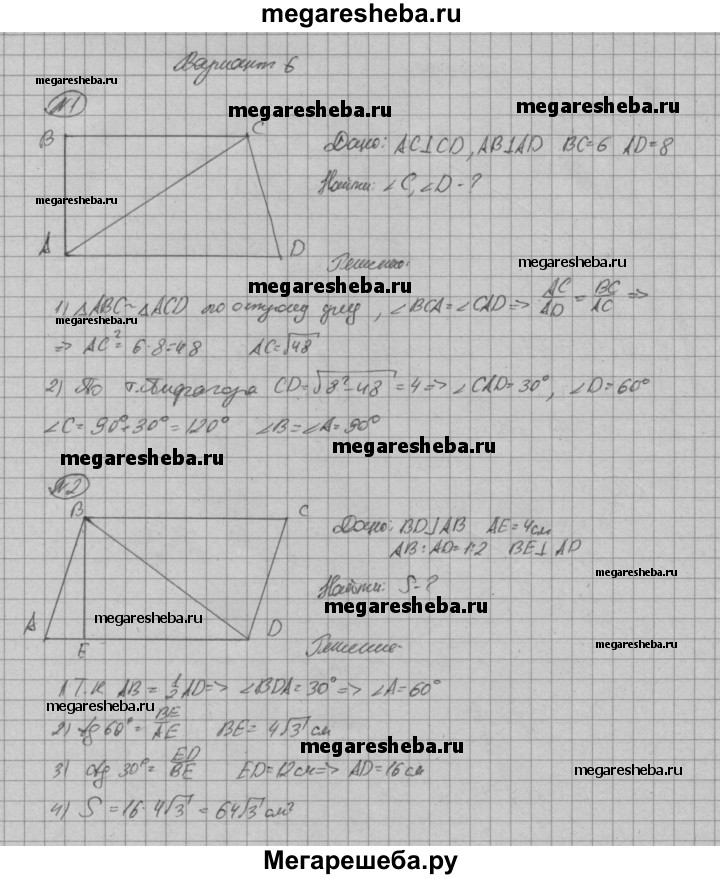 megaresheba.ru
Вариант 6
megaresheba.ru
№1
megaresheba.ru
megaresheba.ru
B
C
Дано: AC⊥CD, AB⊥AD BC=6 AD=8
Найти: ∠C, ∠D - ?
megaresheba.ru
A
D
Решение:
megaresheba.ru
megaresheba.ru
1) △ABC~△ACD по острому углу, ∠BCA=∠CAD => AC/AD = BC/AC =>
megaresheba.ru
=> AC²= 6·8=48 AC=√48
2) По т.Пифагора CD=√8²-48 = 4 => ∠CAD=30°, ∠D=60°
∠C= 90°+30°=120° ∠B=∠A=90°
megaresheba.ru
megaresheba.ru
№2
B
C
Дано: BD⊥AB AE=4см
AB:AD=1:2 BE⊥AD
megaresheba.ru
Найти: S-?
megaresheba.ru
megaresheba.ru
A
E
D
Решение.
megaresheba.ru
1 Т.к AB = 1/2 AD=> ∠BDA=30° => ∠A=60°
megaresheba.ru
2) tg 60°= BE/AE BE= 4√3 см
megaresheba.ru
3) ctg 30°= ED/BE ED=12см=> AD=16см
megaresheba.ru
4) S = 16·4√3 = 64√3 см²
Мегарешеба.ру